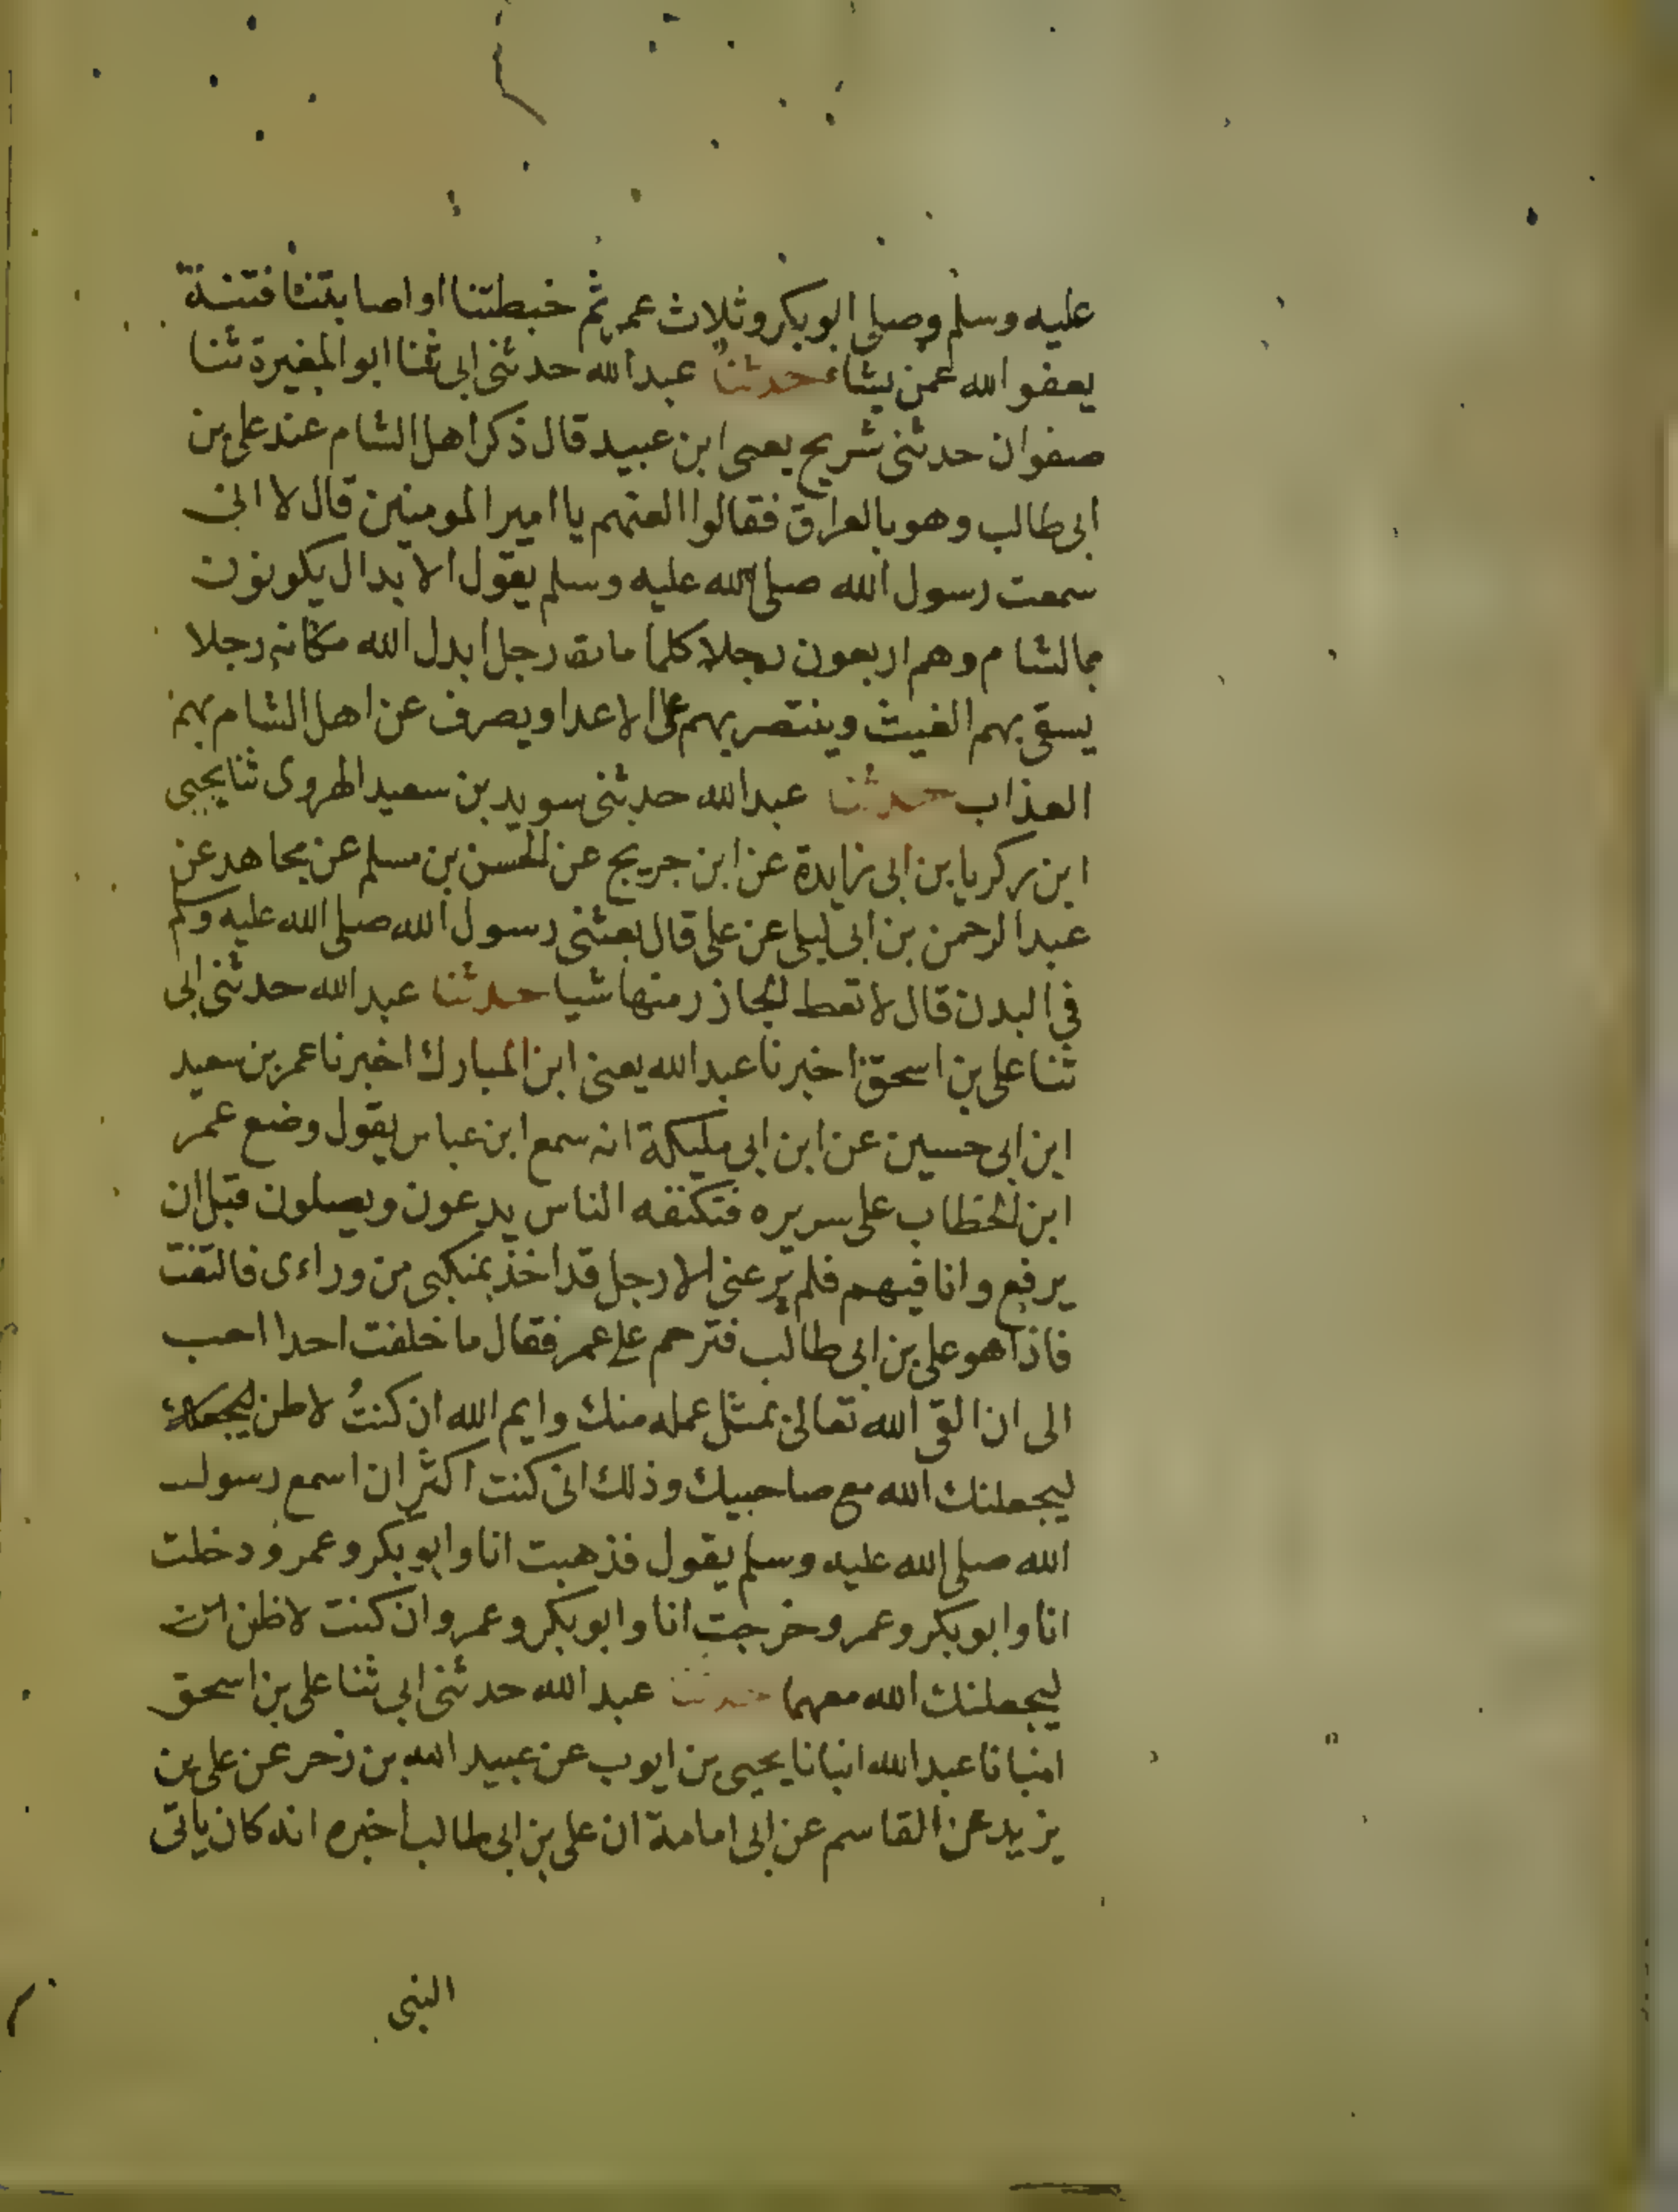 عليه وسلم وصلى ابو بكر وثلاث عمر ثم خبطتنا او اصابتنا فتنة
يعفو الله عمن يشاء حدثنا عبد الله حدثنى ابى ثنا ابو المغيرة ثنا
صفوان حدثنى شريح يعنى ابن عبيد قال ذكر اهل الشام عند على بن
ابى طالب وهو بالعراق فقالوا العنهم يا امير المومنين قال لا انى
سمعت رسول الله صلى الله عليه وسلم يقول الابدال يكونون
بالشام وهم اربعون رجلا كلما مات رجل ابدل الله مكانه رجلا
يسقى بهم الغيث وينتصر بهم على الاعدا ويصرف عن اهل الشام بهم
العذاب حدثنا عبد الله حدثنى سويد بن سعيد الهروى ثنا يحيى
ابن زكريا بن ابى زايدة عن ابن جريج عن الحسن بن مسلم عن مجاهد عن
عبد الرحمن بن ابى ليلى عن على قال بعثنى رسول الله صلى الله عليه وسلم
فى البدن قال لا تعط الجازر منها شيا حدثنا عبد الله حدثنى ابى
ثنا على بن اسحق اخبرنا عبد الله يعنى ابن المبارك اخبرنا عمر بن سعيد
ابن ابى حسين عن ابن ابى مليكة انه سمع ابن عباس يقول وضع عمر
ابن الخطاب على سريره فتكنفه الناس يدعون ويصلون قبل ان
يرفع وانا فيهم فلم يرعنى الا رجل قد اخذ بمنكبى من وراءى فالتفت
فاذا هو على بن ابى طالب فترحم على عمر فقال ما خلفت احدا احب
الى ان القى الله تعالى بمثل عمله منك وايم الله ان كنتُ لاظن
ليجعلنك الله مع صاحبيك وذلك انى كنت اكثر ان اسمع رسول
الله صلى الله عليه وسلم يقول فذهبت انا وابو بكر وعمر ودخلت
انا وابو بكر وعمر وخرجت انا وابو بكر وعمر وان كنت لاظن
ليجعلنك الله معهما حدثنا عبد الله حدثنى ابى ثنا على بن اسحق
انبانا عبد الله انبانا يحيى بن ايوب عن عبيد الله بن زحر عن على بن
يزيد عن القاسم عن ابى امامة ان على بن ابى طالب اخبره انه كان ياتى
النبى